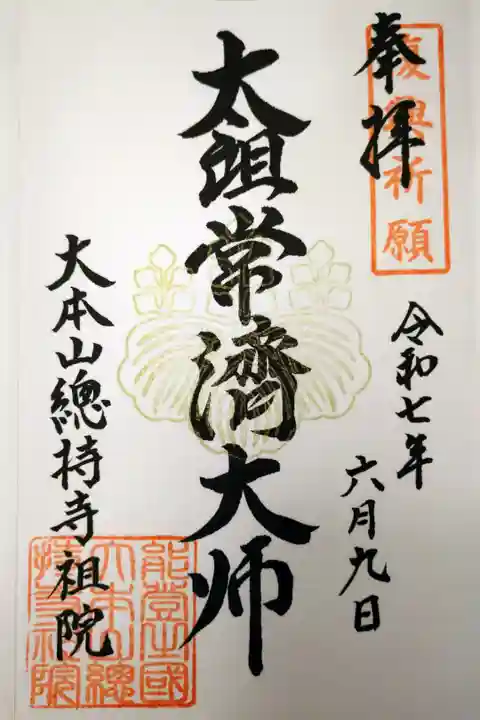 復興祈願
奉拝
令和七年
六月九日
太祖常済大师
大本山總持寺祖院
能登國
大本山總
持寺祖院